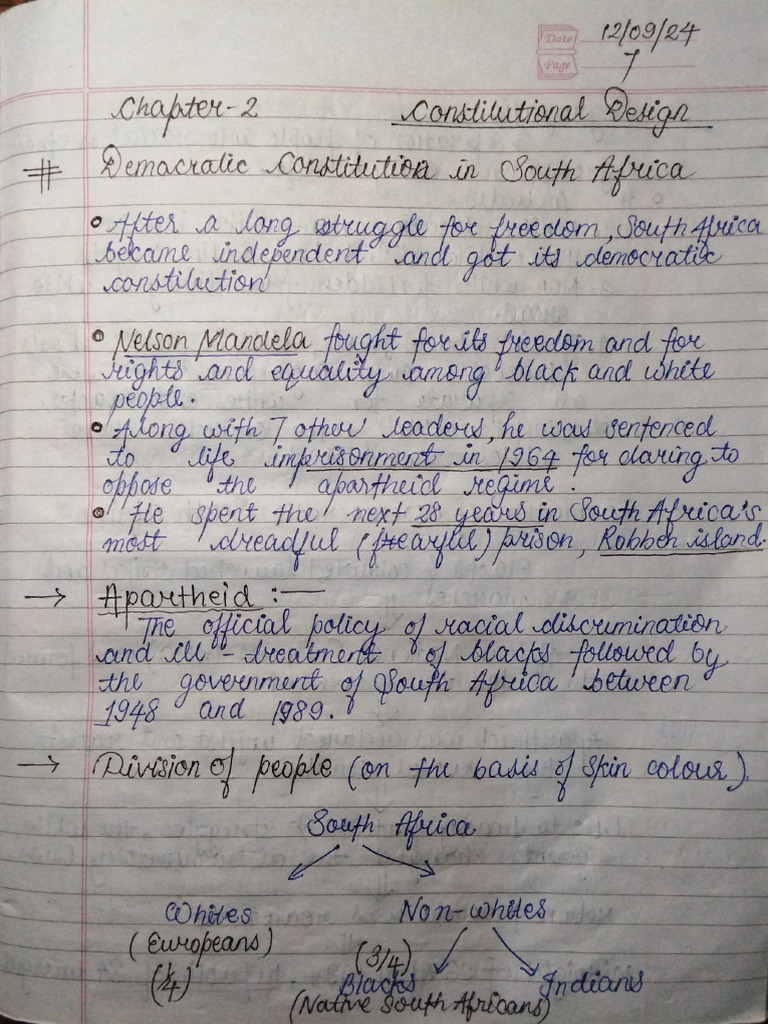 Date 12/09/24
Page 7
Chapter-2 Constitutional Design
# Democratic Constitution in South Africa
• After a long struggle for freedom, South Africa
became independent and got its democratic
constitution
• Nelson Mandela fought for its freedom and for
rights and equality among black and white
people.
• Along with 7 other leaders, he was sentenced
to life imprisonment in 1964 for daring to
oppose the apartheid regime.
• He spent the next 28 years in South Africa's
most dreadful (fearful) prison, Robben island.
→ Apartheid :—
The official policy of racial discrimination
and ill-treatment of blacks followed by
the government of South Africa between
1948 and 1989.
→ Division of people (on the basis of skin colour).
South Africa
Whites Non-whites
(Europeans) (3/4)
(1/4) Blacks Indians
(Native South Africans)